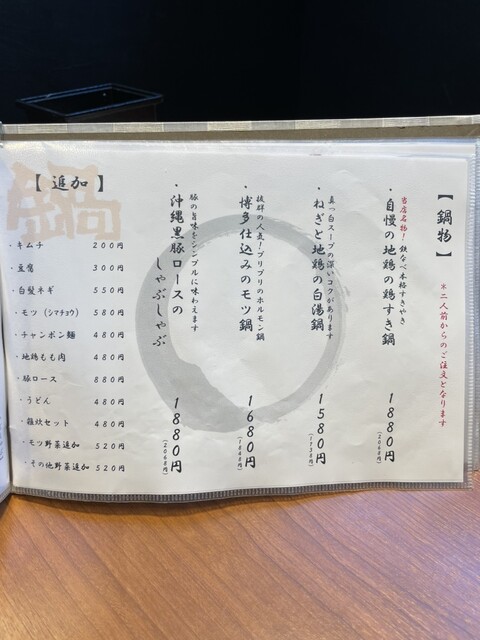 【鍋物】
＊二人前からのご注文となります
当店名物！鉄なべ本格すきやき
・自慢の地鶏の鶏すき鍋
1880円
(2068円)
真っ白スープの深いコクがあります
・ねぎと地鶏の白湯鍋
1580円
(1738円)
抜群の人気！プリプリのホルモン鍋
・博多仕込みのモツ鍋
1680円
(1848円)
豚の旨味をシンプルに味わえます
・沖縄黒豚ロースの
しゃぶしゃぶ
1880円
(2068円)
鍋
【追加】
・キムチ 200円
・豆腐 300円
・白髪ネギ 550円
・モツ（シマチョウ） 580円
・チャンポン麺 480円
・地鶏もも肉 480円
・豚ロース 880円
・うどん 480円
・雑炊セット 480円
・モツ野菜追加 520円
・その他野菜追加 520円